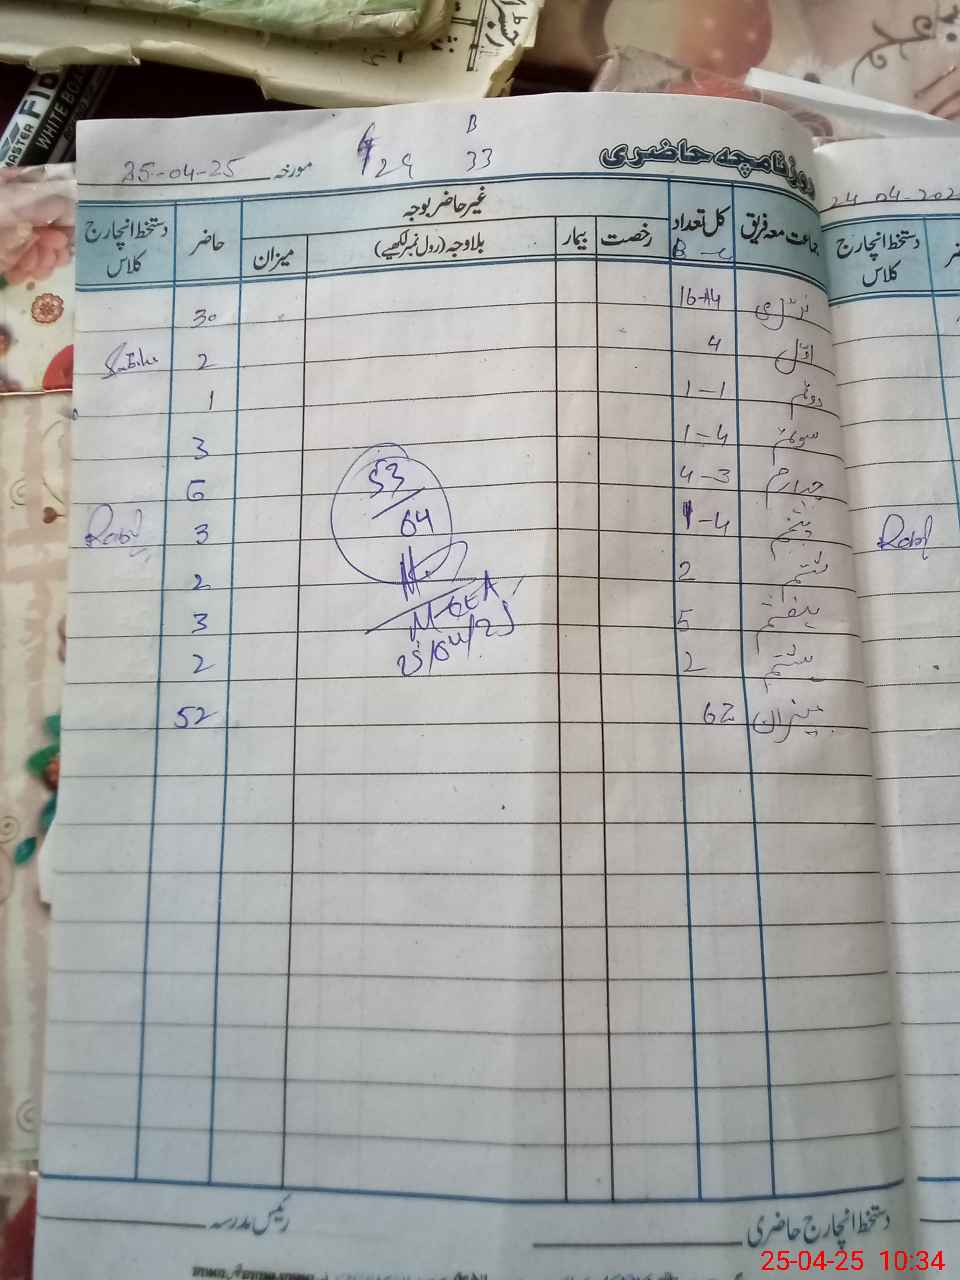 MASTER FIDE
WHITE BOA
روزنامچہ حاضری
B
33
29
مورخہ 25-04-25
جماعت معہ فریق
کل تعداد
B
غیر حاضر بوجہ
رخصت
بیمار
بلاوجہ (رول نمبر لکھیے)
میزان
حاضر
دستخط انچارج کلاس
نرسری 16-14 30
اوّل 4 2
دوئم 1-1 1
سوئم 1-4 3
چہارم 4-3 6
پنجم 1-4 3 Rabl
ششم 2 2
ہفتم 5 3
ہشتم 2 2
میزان 62 52
53/64
M-GEA
25/04/25
دستخط انچارج حاضری
رئیس مدرسہ
24 04-202
دستخط انچارج کلاس
Rabl
25-04-25 10:34